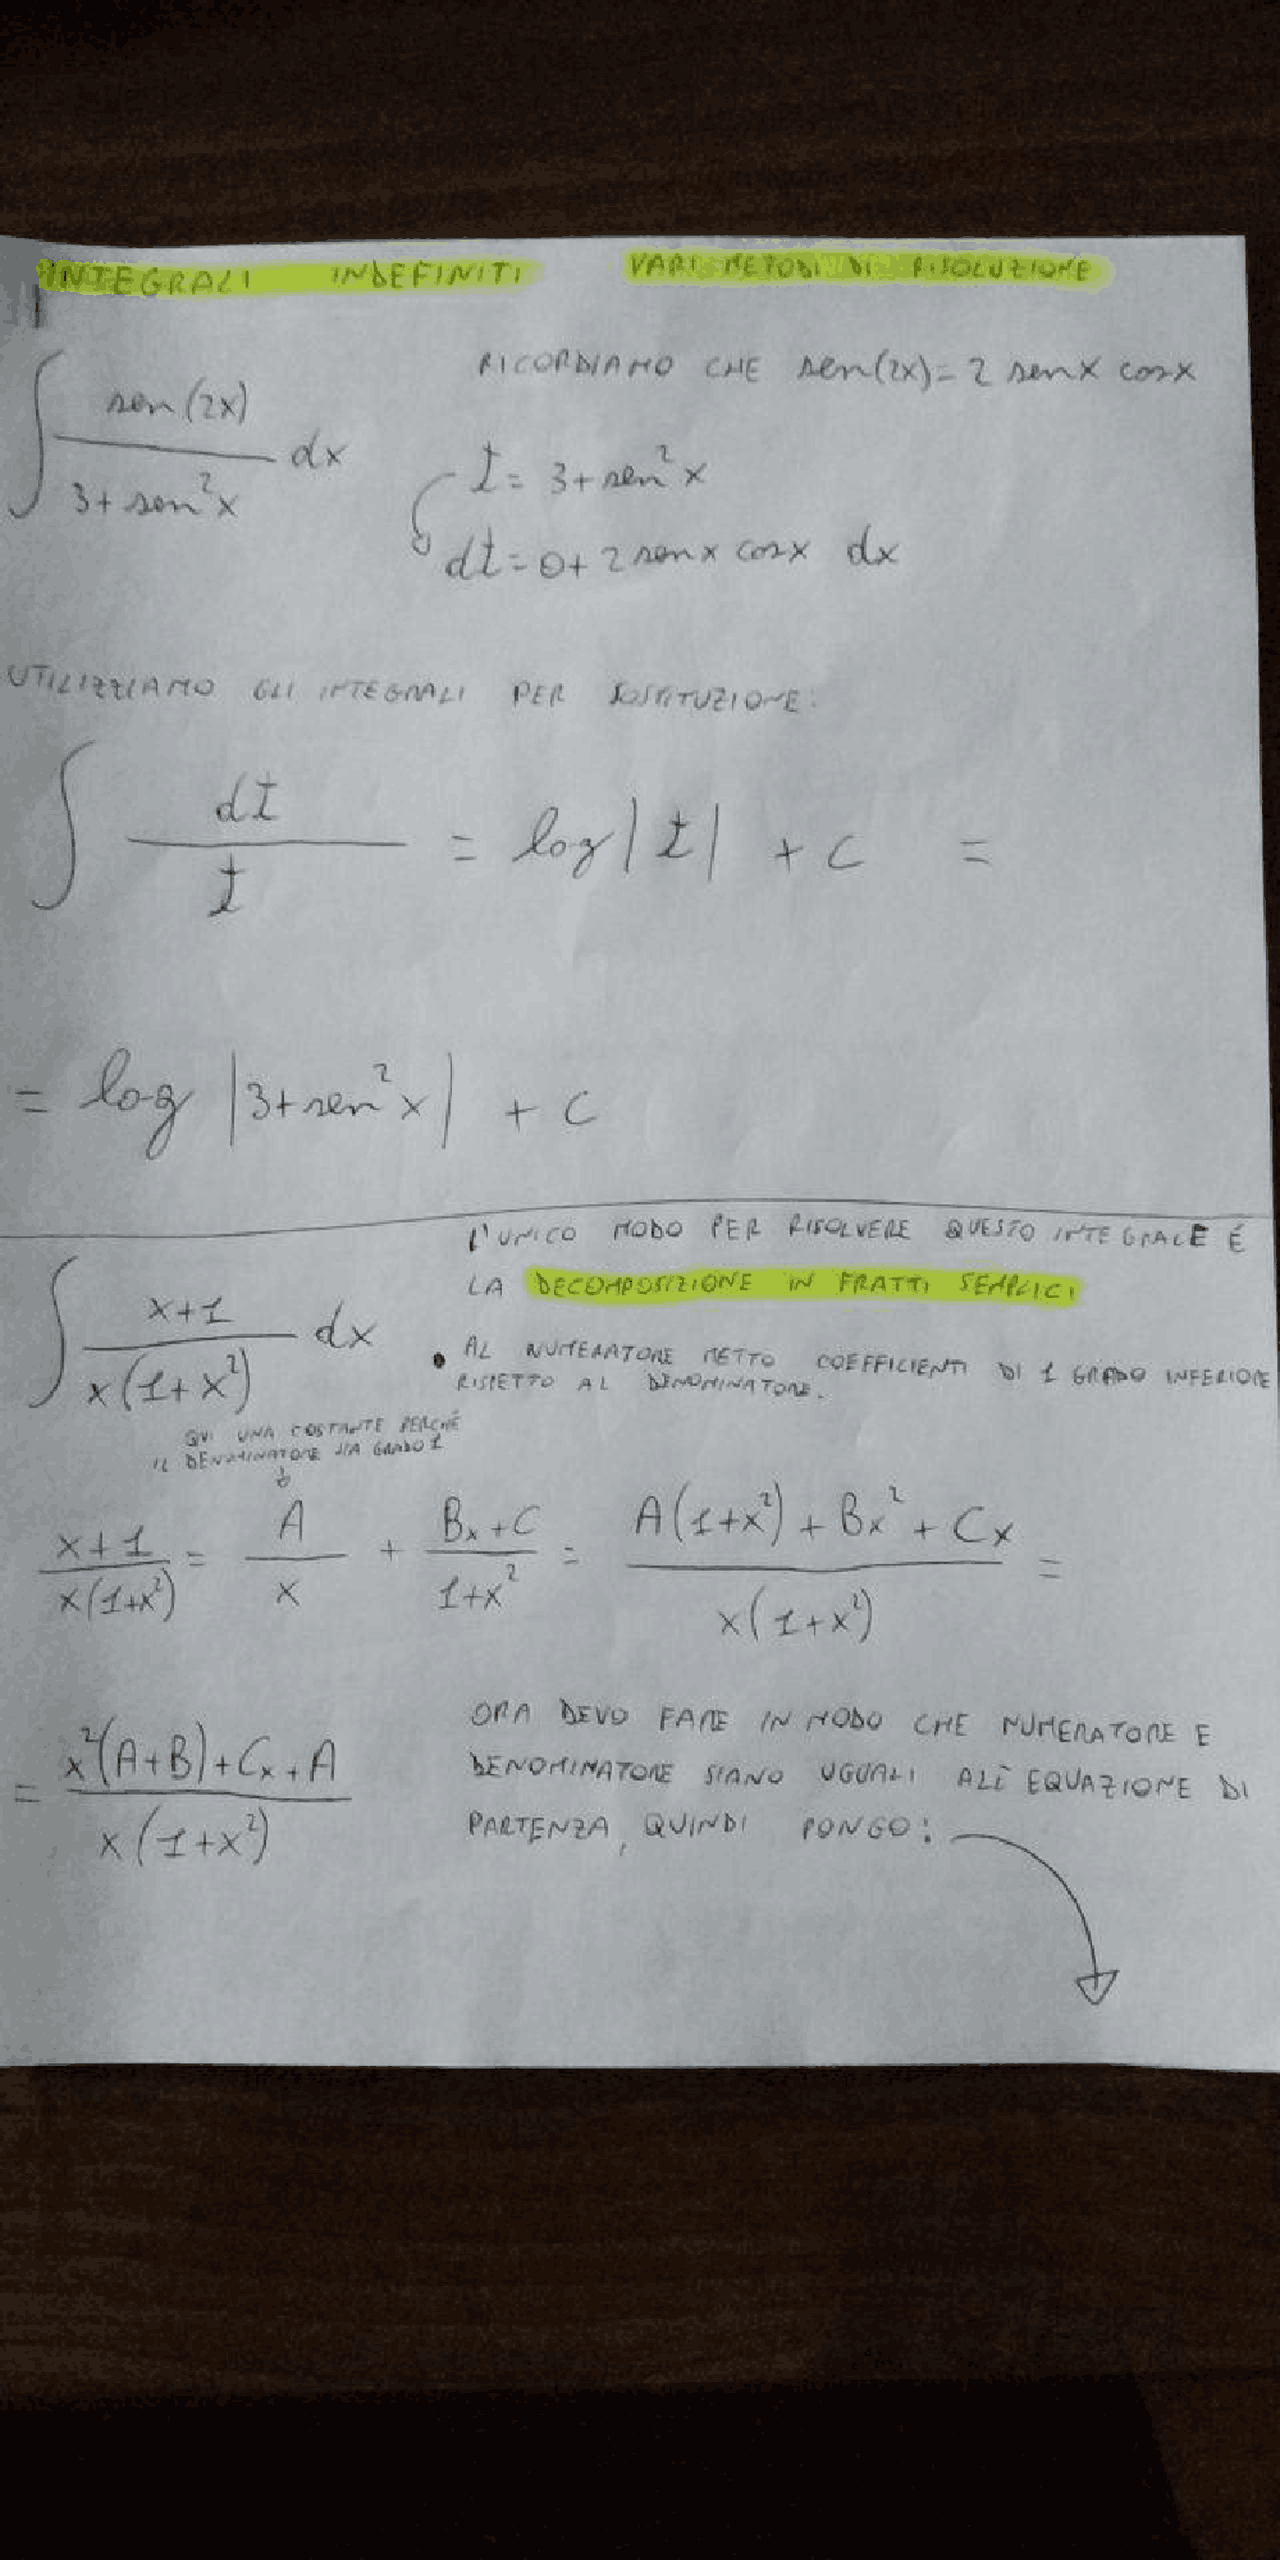 INTEGRALI INDEFINITI VARI METODI DI RISOLUZIONE
∫ sen(2x) / 3+sen²x dx
RICORDIAMO CHE sen(2x)= 2 senx cosx
t= 3+sen²x
dt= 0+2 senx cosx dx
UTILIZZIAMO GLI INTEGRALI PER SOSTITUZIONE:
∫ dt / t = log|t| + c =
= log |3+sen²x| + c
L'UNICO MODO PER RISOLVERE QUESTO INTEGRALE É
LA DECOMPOSIZIONE IN FRATTI SEMPLICI
∫ x+1 / x(1+x²) dx
• AL NUMERATORE METTO COEFFICIENTI DI 1 GRADO INFERIORE
RISPETTO AL DENOMINATORE.
QUI UNA COSTANTE PERCHÉ
IL DENOMINATORE HA GRADO 1
x+1 / x(1+x²) = A / x + Bx+C / 1+x² = A(1+x²)+Bx²+Cx / x(1+x²) =
= x²(A+B)+Cx+A / x(1+x²)
ORA DEVO FARE IN MODO CHE NUMERATORE E
DENOMINATORE SIANO UGUALI ALL'EQUAZIONE DI
PARTENZA, QUINDI PONGO: